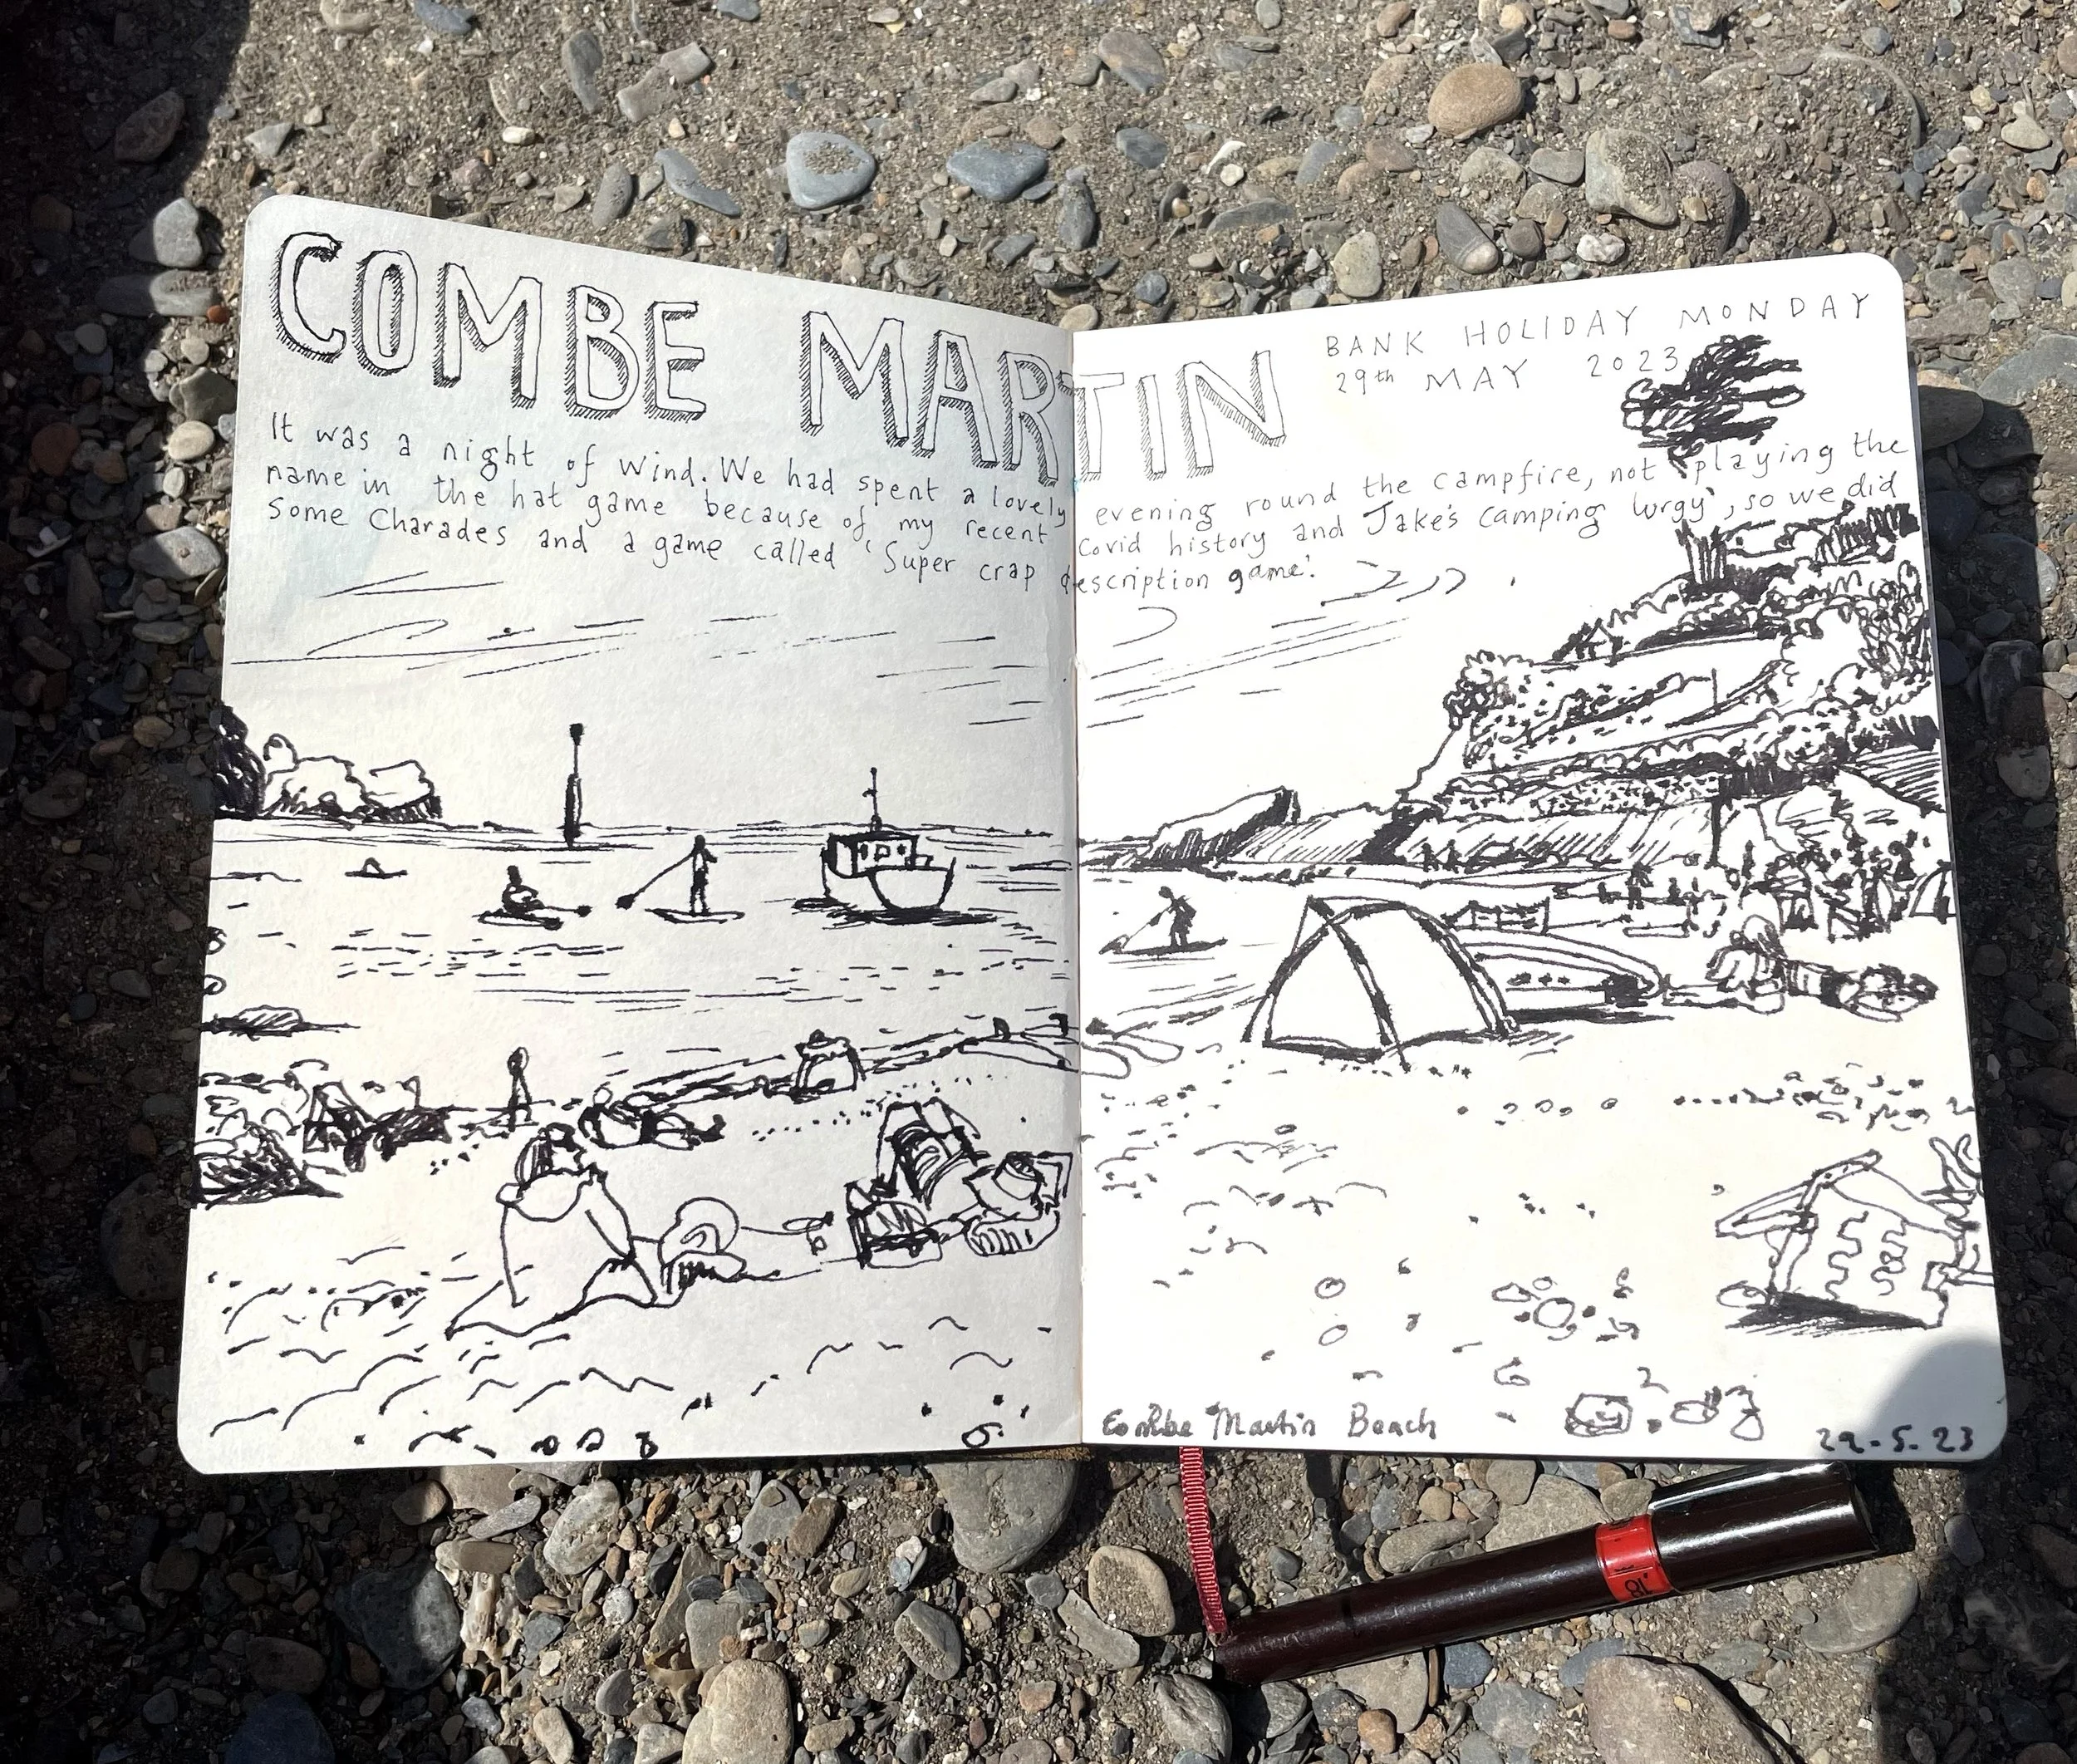 COMBE MARTIN
BANK HOLIDAY MONDAY
29th MAY 2023
It was a night of wind. We had spent a lovely evening round the campfire, not playing the
name in the hat game because of my recent Covid history and Jake's camping lurgy', so we did
some Charades and a game called 'Super crap description game'.
Combe Martin Beach
29.5.23